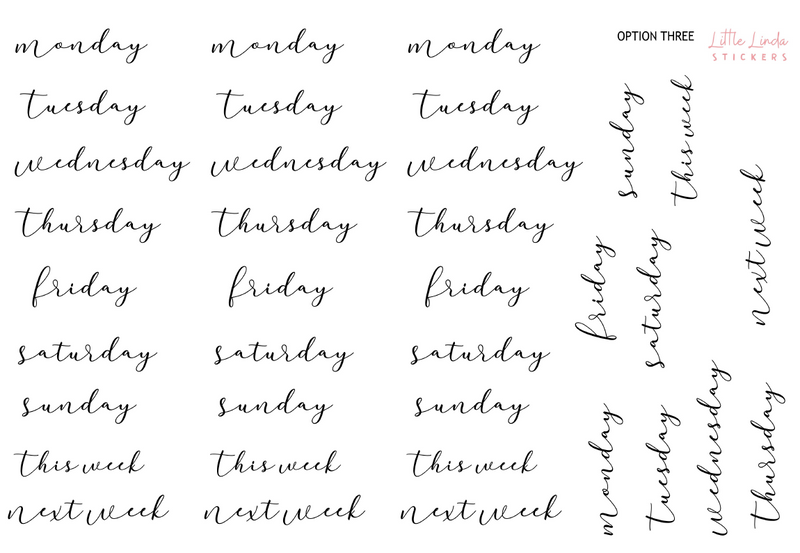 OPTION THREE
Little Linda
STICKERS
monday monday monday
tuesday tuesday tuesday
wednesday wednesday wednesday
thursday thursday thursday
friday friday friday
saturday saturday saturday
sunday sunday sunday
this week this week this week
next week next week next week
sunday
this week
next week
friday
saturday
monday
tuesday
wednesday
thursday